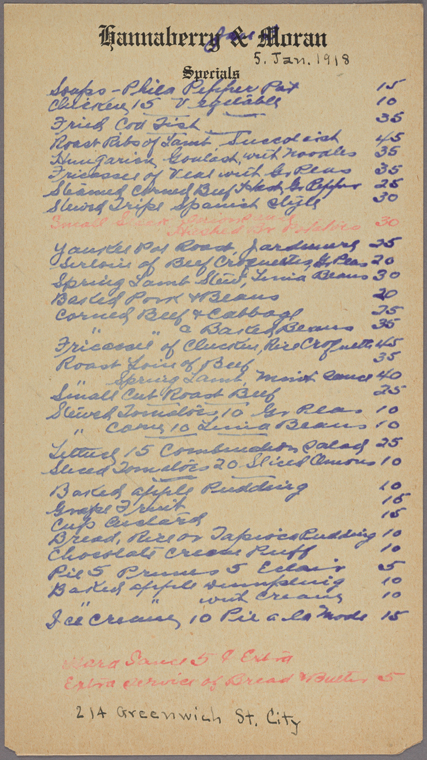 Hannaberry & Moran
5. Jan. 1918
Specials
Soups - Phila Pepper Pot 15
Chicken 15 Vegetable 10
Fried Cod Fish 35
Roast Ribs of Lamb, Succotash 45
Hungarian Goulash, with Noodles 35
Fricassee of Veal with Gr Peas 35
Steamed Corned Beef Hash, Gr Pepper 25
Stewed Tripe Spanish Style 30
Small Steak, Onion Sauce
Hashed Br Potatoes 30
Yankee Pot Roast, Jardiniere 25
Sirloin of Beef Croquettes, Gr Peas 20
Spring Lamb Stew, Lima Beans 30
Baked Pork & Beans 20
Corned Beef & Cabbage 25
" " & Baked Beans 35
Fricassee of Chicken, Rice Croquette 45
Roast Loin of Beef 35
" Spring Lamb, Mint Sauce 40
Small Cut Roast Beef 25
Stewed Tomatoes, 10 Gr Peas 10
" Corn, 10 Lima Beans 10
Lettuce 15 Combination Salad 25
Sliced Tomatoes 20 Sliced Onions 10
Baked Apple Pudding 10
Grape Fruit 15
Cup Custard 15
Bread, Rice or Tapioca Pudding 10
Chocolate Cream Puff 10
Pie 5 Prunes 5 Eclair 5
Baked Apple Dumpling 10
" " with Cream 10
Ice Cream, 10 Pie a la Mode 15
Hard Sauce 5 ¢ Extra
Extra service of Bread & Butter 5
214 Greenwich St. City